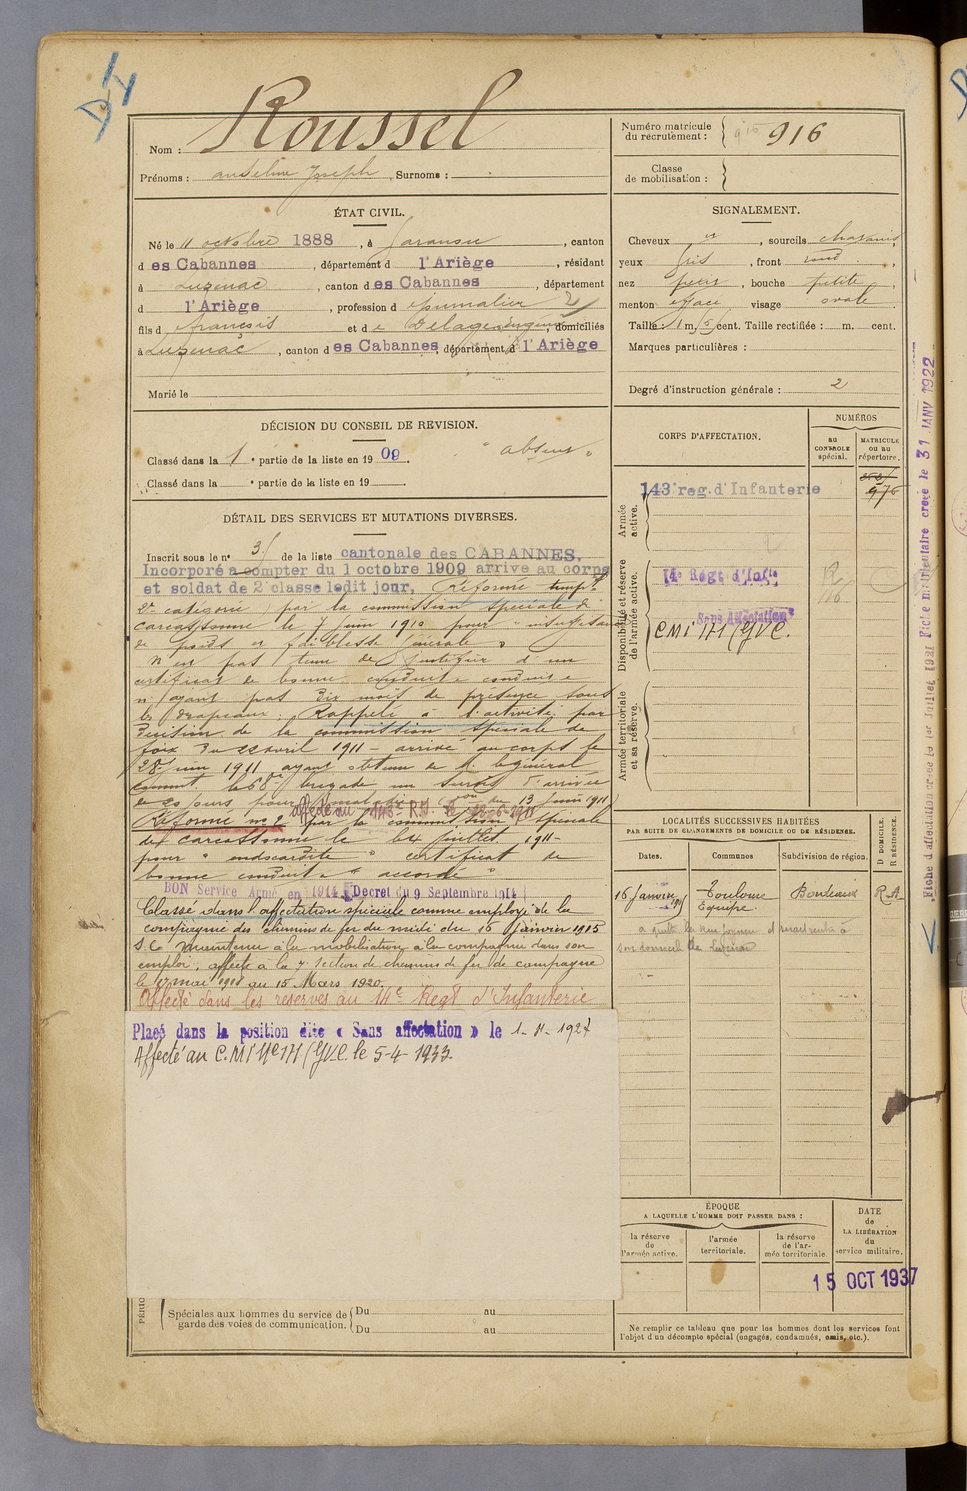 Roussel
Nom :
Numéro matricule
du recrutement :
916
Prénoms : Anselme Joseph Surnoms :
Classe
de mobilisation :
ÉTAT CIVIL.
Né le 11 octobre 1888, à Garanou, canton
d es Cabannes, département d l'Ariège, résidant
à Luzenac, canton d es Cabannes, département
d l'Ariège, profession d
fils d François et de Delage, domiciliés
à Luzenac, canton d es Cabannes, département d l'Ariège
Marié le
SIGNALEMENT.
Cheveux et, sourcils chatains,
yeux gris, front rond,
nez petit, bouche petite,
menton visage ovale
Taille : 1 m. cent. Taille rectifiée : m. cent.
Marques particulières :
Degré d'instruction générale : 2
DÉCISION DU CONSEIL DE REVISION.
Classé dans la 1e partie de la liste en 1909. "absent"
Classé dans la e partie de la liste en 19
DÉTAIL DES SERVICES ET MUTATIONS DIVERSES.
Inscrit sous le n° 3 de la liste cantonale des CABANNES.
Incorporé à compter du 1 octobre 1909 arrive au corps
et soldat de 2e classe ledit jour. Réformé temp.
2e catégorie par la commission spéciale de
Carcassonne le 7 juin 1910 pour "insuffisance
de poids et faiblesse générale"
N'est pas tenu de justifier d'un
certificat de bonne conduite
n'ayant pas dix mois de présence sous
les drapeaux. Rappelé à l'activité par
décision de la commission spéciale de
Foix du 22 avril 1911 - arrivé au corps le
28 juin 1911 ayant obtenu de M. le général
command. la 68e brigade un sursis d'arrivée
de 20 jours pour du 13 juin 1911
affecté au 143e R.I.
Réformé n° 2 par la commission spéciale
de Carcassonne le 24 juillet 1911 -
pour "endocardite" certificat de
bonne conduite "accordé"
BON Service Armé en 1914 Décret du 9 Septembre 1914
Classé dans l'affectation spéciale comme employé de la
compagnie des chemins de fer du midi du 16 janvier 1915
maintenu à la mobilisation à la compagnie dans son
emploi, affecté à la 7e section de chemins de fer de campagne
le mai 1918 au 15 Mars 1920.
Affecté dans les réserves au 14e Regt d'Infanterie
Placé dans la position dite « Sans affectation » le 1-11-1927
Affecté au C.M.I. N° 171 (GVC. le 5-4-1933
PÉRIO
Spéciales aux hommes du service de
garde des voies de communication.
Du au
Du au
CORPS D'AFFECTATION.
NUMÉROS
au
CONTROLE
spécial.
MATRICULE
ou au
répertoire.
Armée
active.
143e reg. d'Infanterie
976
Disponibilité et réserve
de l'armée active.
14e Régt d'Infie
"Sans Affectation"
CMI 171 (GVC.
Armée territoriale
et sa réserve.
LOCALITÉS SUCCESSIVES HABITÉES
PAR SUITE DE CHANGEMENTS DE DOMICILE OU DE RÉSIDENCE.
Dates.
Communes
Subdivision de région.
D DOMICILE.
R RÉSIDENCE.
16 janvier Toulouse Bordeaux R.A
Equipe.
ÉPOQUE
A LAQUELLE L'HOMME DOIT PASSER DANS :
la réserve
de
l'armée active.
l'armée
territoriale.
la réserve
de l'ar-
mée territoriale
DATE
de
LA LIBÉRATION
du
service militaire.
15 OCT 1937
Ne remplir ce tableau que pour les hommes dont les services font
l'objet d'un décompte spécial (engagés, condamnés, omis, etc.).
Fiche d'affectation créée le 1er Juillet 1921 Fiche matriculaire créée le 31 JANV 1922